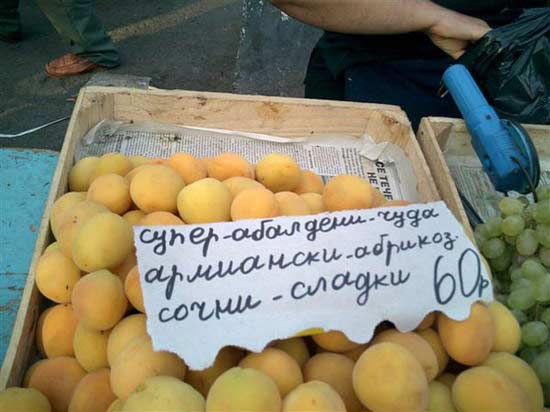 супер-абалдени-чуда
армиански-абрикоз.
сочни-сладки 60р